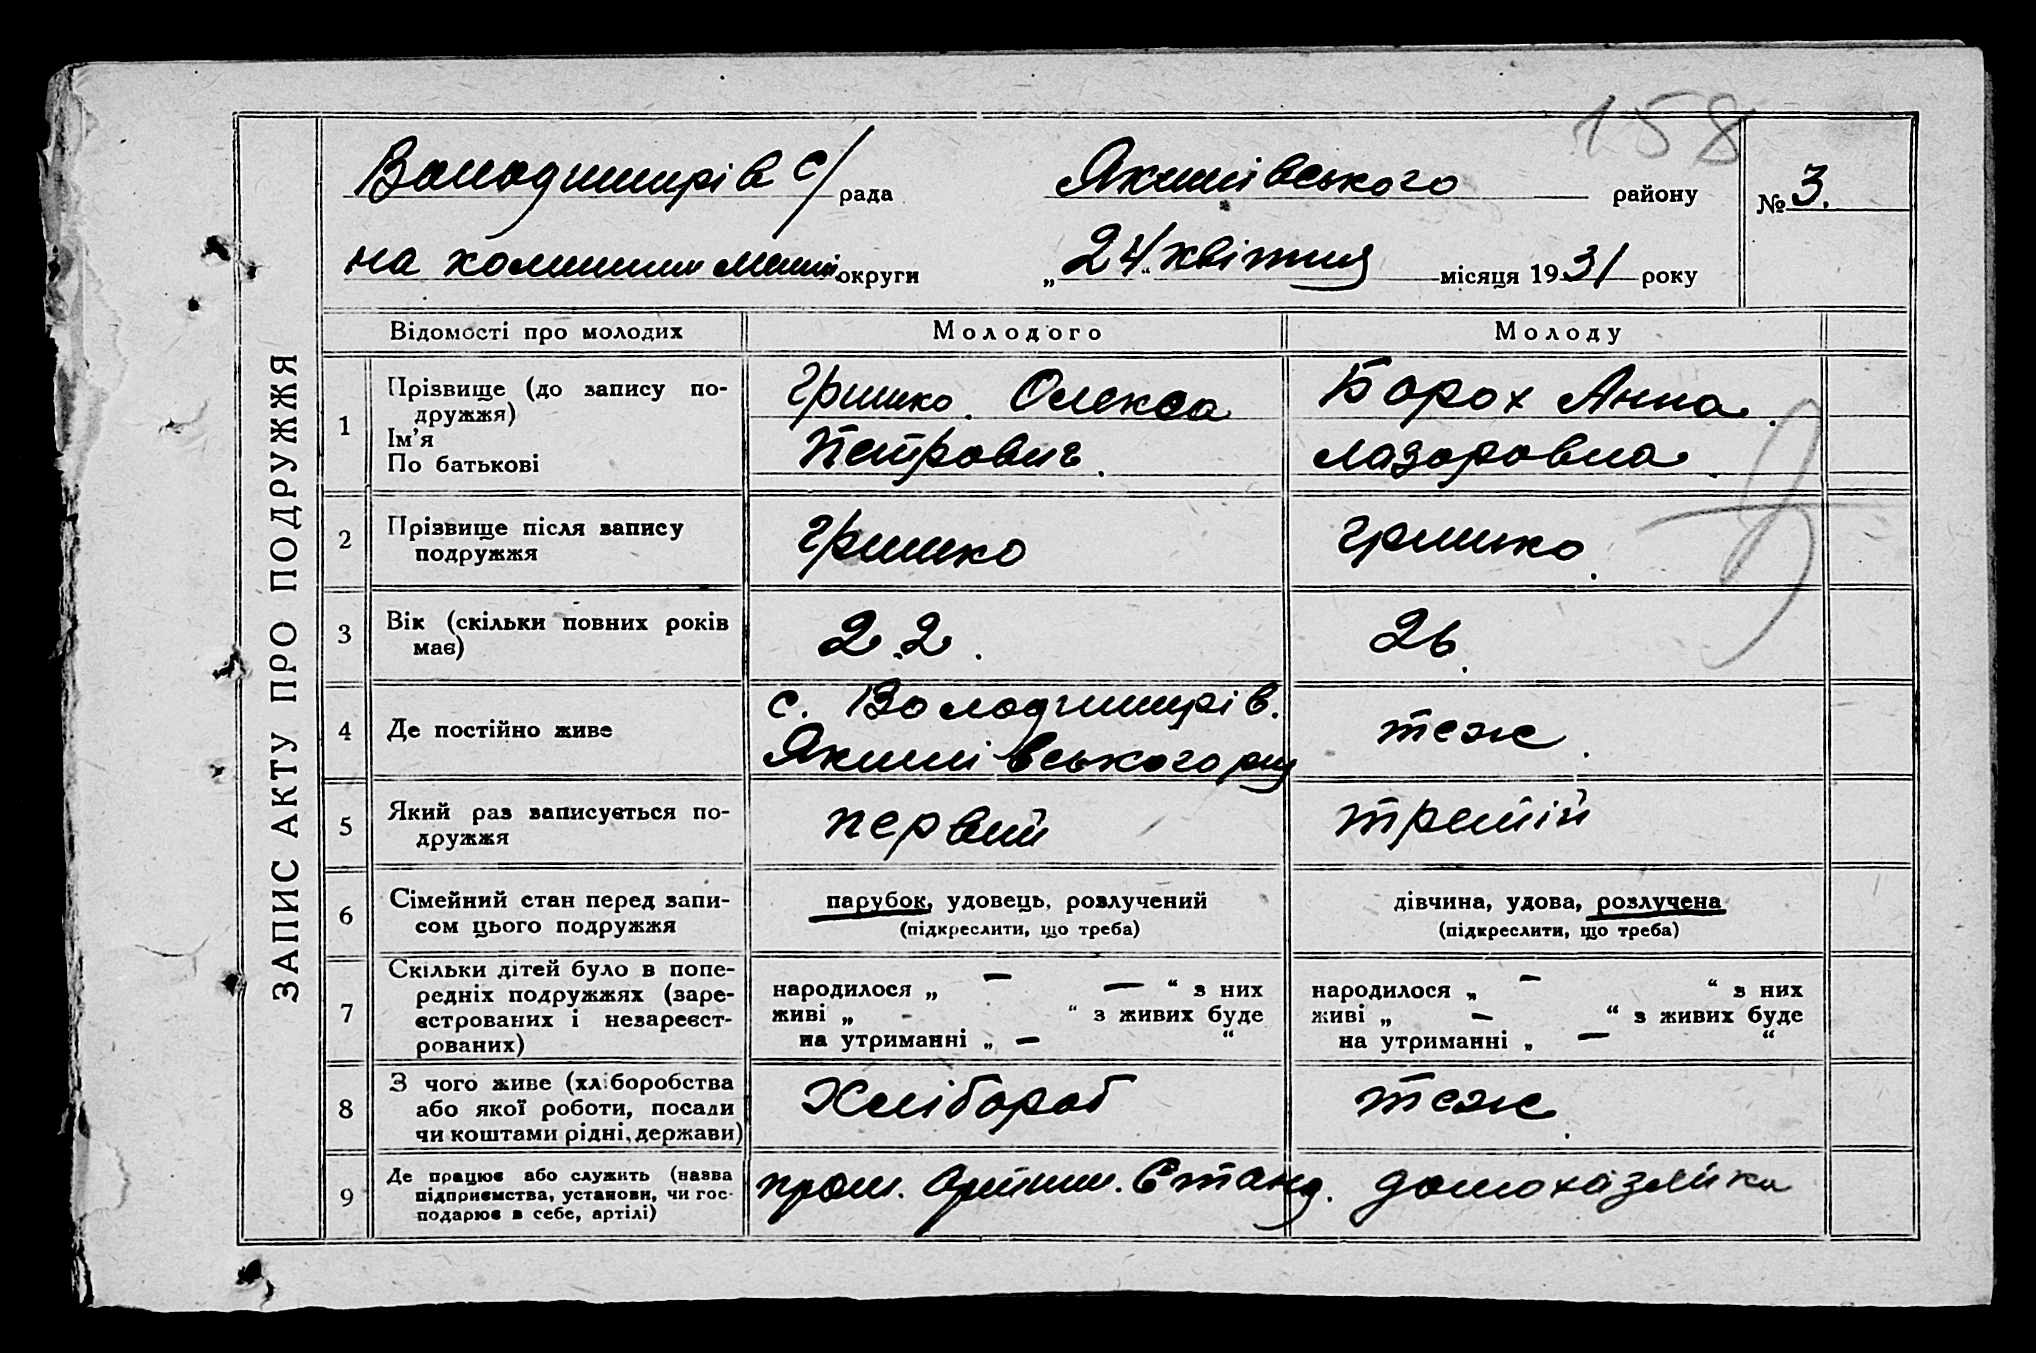 158
Володимирів с/рада Якимівського району №3.
на колишни Мелит округи „24“ квітня місяця 1931 року
ЗАПИС АКТУ ПРО ПОДРУЖЖЯ
Відомості про молодих Молодого Молоду
1 Прізвище (до запису по-
дружжя)
Ім'я
По батькові
Гришко. Олекса
Петрович.
Борох Анна.
Лазоровна.
2 Прізвище після запису
подружжя
Гришко
Гришко.
3 Вік (скільки повних років
має)
22.
26.
4 Де постійно живе
с. Володимирів.
Якимівського рну
теж.
5 Який раз записується по-
дружжя
первий
третій
6 Сімейний стан перед запи-
сом цього подружжя
парубок, удовець, розлучений
(підкреслити, що треба)
дівчина, удова, розлучена
(підкреслити, що треба)
7 Скільки дітей було в попе-
редніх подружжях (заре-
єстрованих і незареєст-
рованих)
народилося „ — — “ з них
живі „ - “ з живих буде
на утриманні „ — “
народилося „ — “ з них
живі „ — “ з живих буде
на утриманні „ — “
8 З чого живе (хліборобства
або якої роботи, посади
чи коштами рідні, держави)
Хлібороб
теж.
9 Де працює або служить (назва
підприємства, установи, чи гос-
подарює в себе, артілі)
пром.
домохазяйка